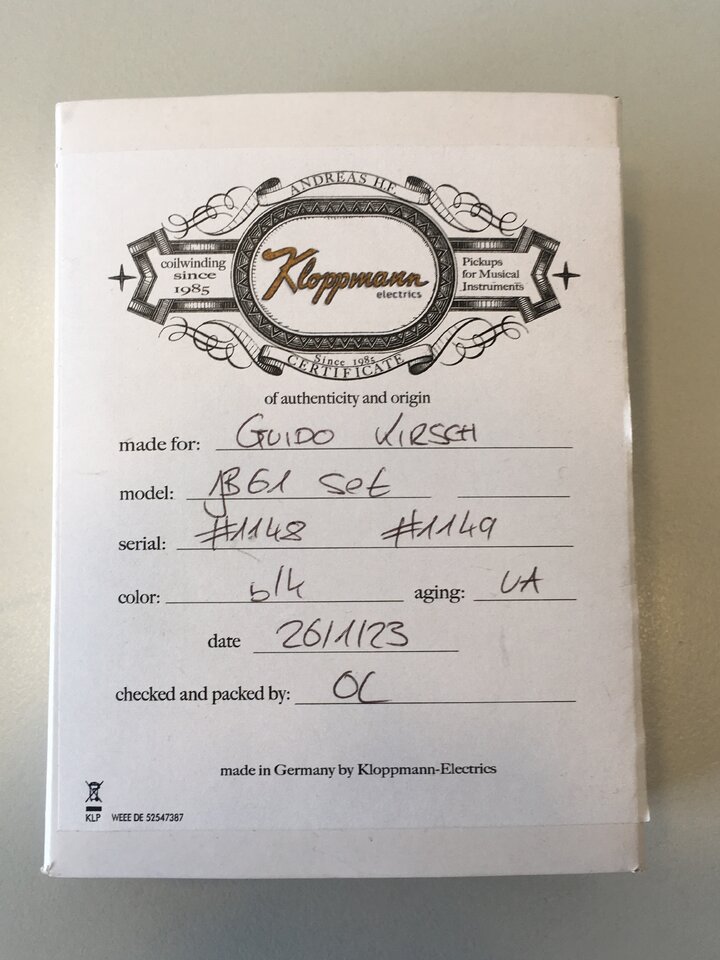 ANDREAS H.F.
coilwinding
since
1985
Kloppmann
electrics
Pickups
for Musical
Instruments
Since 1985
CERTIFICATE
of authenticity and origin
made for: GUIDO KIRSCH
model: JB61 Set
serial: #1148 #1149
color: blk
aging: UA
date 26/1/23
checked and packed by: OC
made in Germany by Kloppmann-Electrics
KLP WEEE DE 52547387